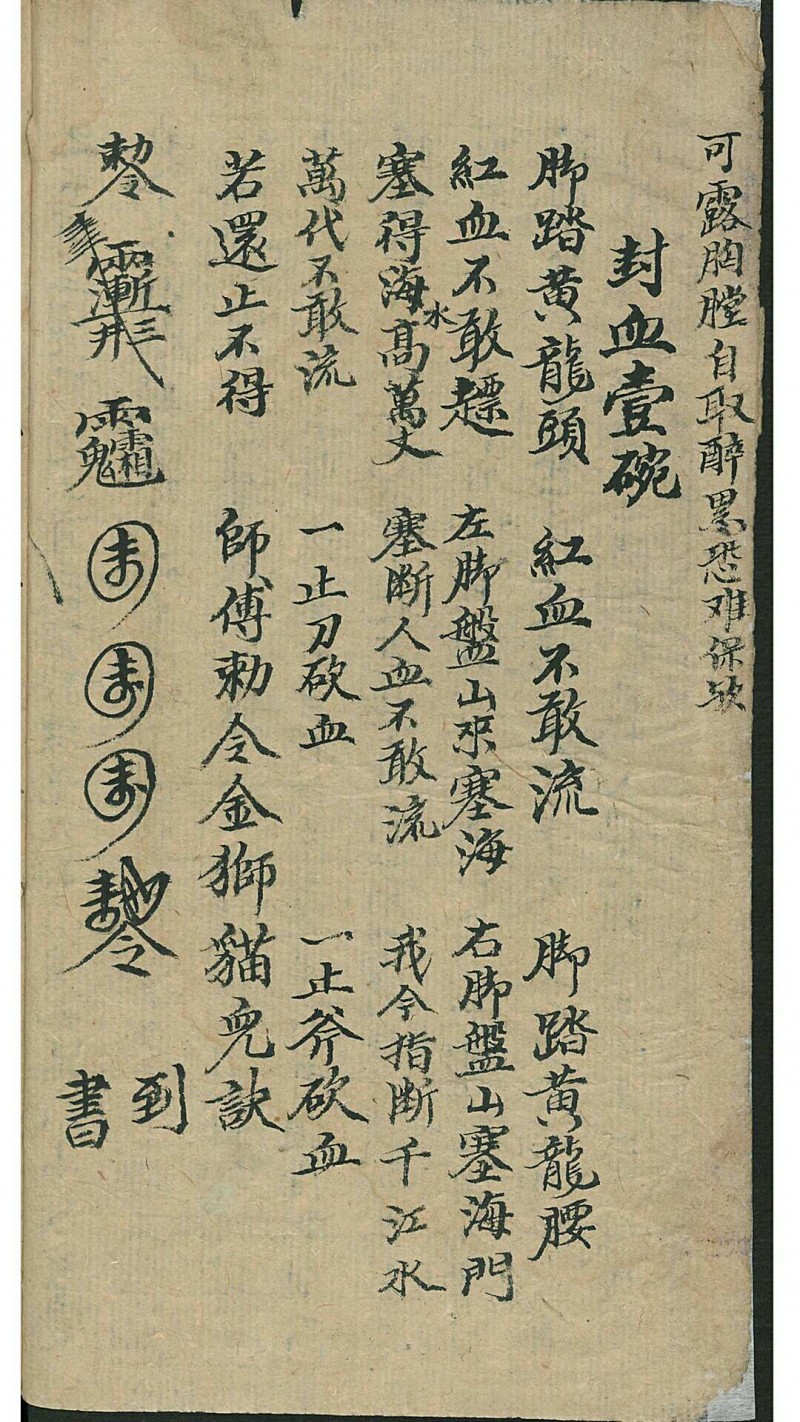 可露胸膛自取醉累恐难保欤
封血壹碗
脚踏黄龍頭 紅血不敢流 脚踏黄龍腰
紅血不敢趮 左脚盤山來塞海 右脚盤山塞海門
塞得海水高萬丈 塞断人血不敢流 我今指断千江水
萬代不敢流 一止刀砍血 一止斧砍血
若還止不得 師傅勅令金獅貓兒訣
勅令
到
書